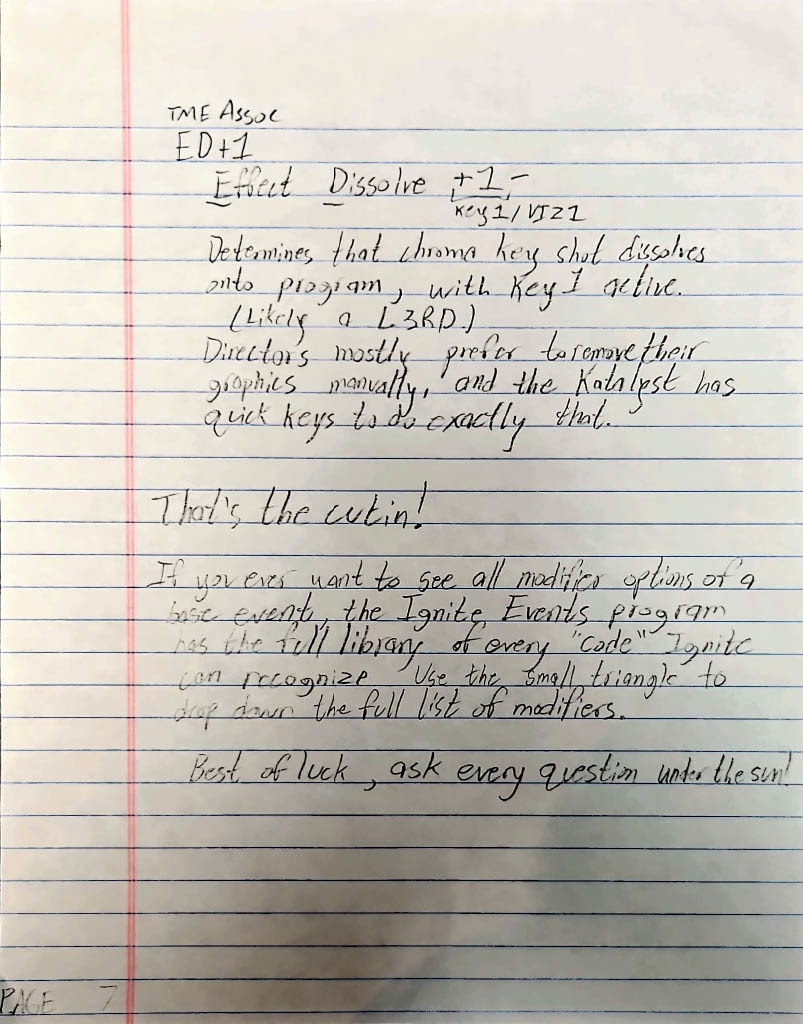 TME Assoc
ED+1
Effect Dissolve +1-
Key1/VIZ1
Determines that chroma key shot dissolves
onto program, with Key 1 active.
(Likely a L3RD.)
Directors mostly prefer to remove their
graphics manually, and the Katalyst has
quick keys to do exactly that.
That's the cutin!
If you ever want to see all modifier options of a
base event, the Ignite Events program
has the full library of every "code" Ignite
can recognize. Use the small triangle to
drop down the full list of modifiers.
Best of luck, ask every question under the sun!
PAGE 7